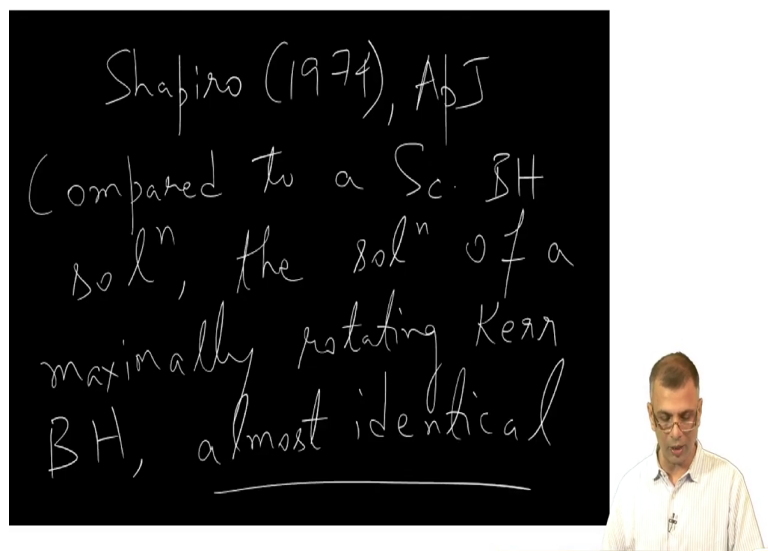 Shapiro (1974), ApJ
Compared to a Sc. BH
solⁿ, the solⁿ of a
maximally rotating Kerr
BH, almost identical